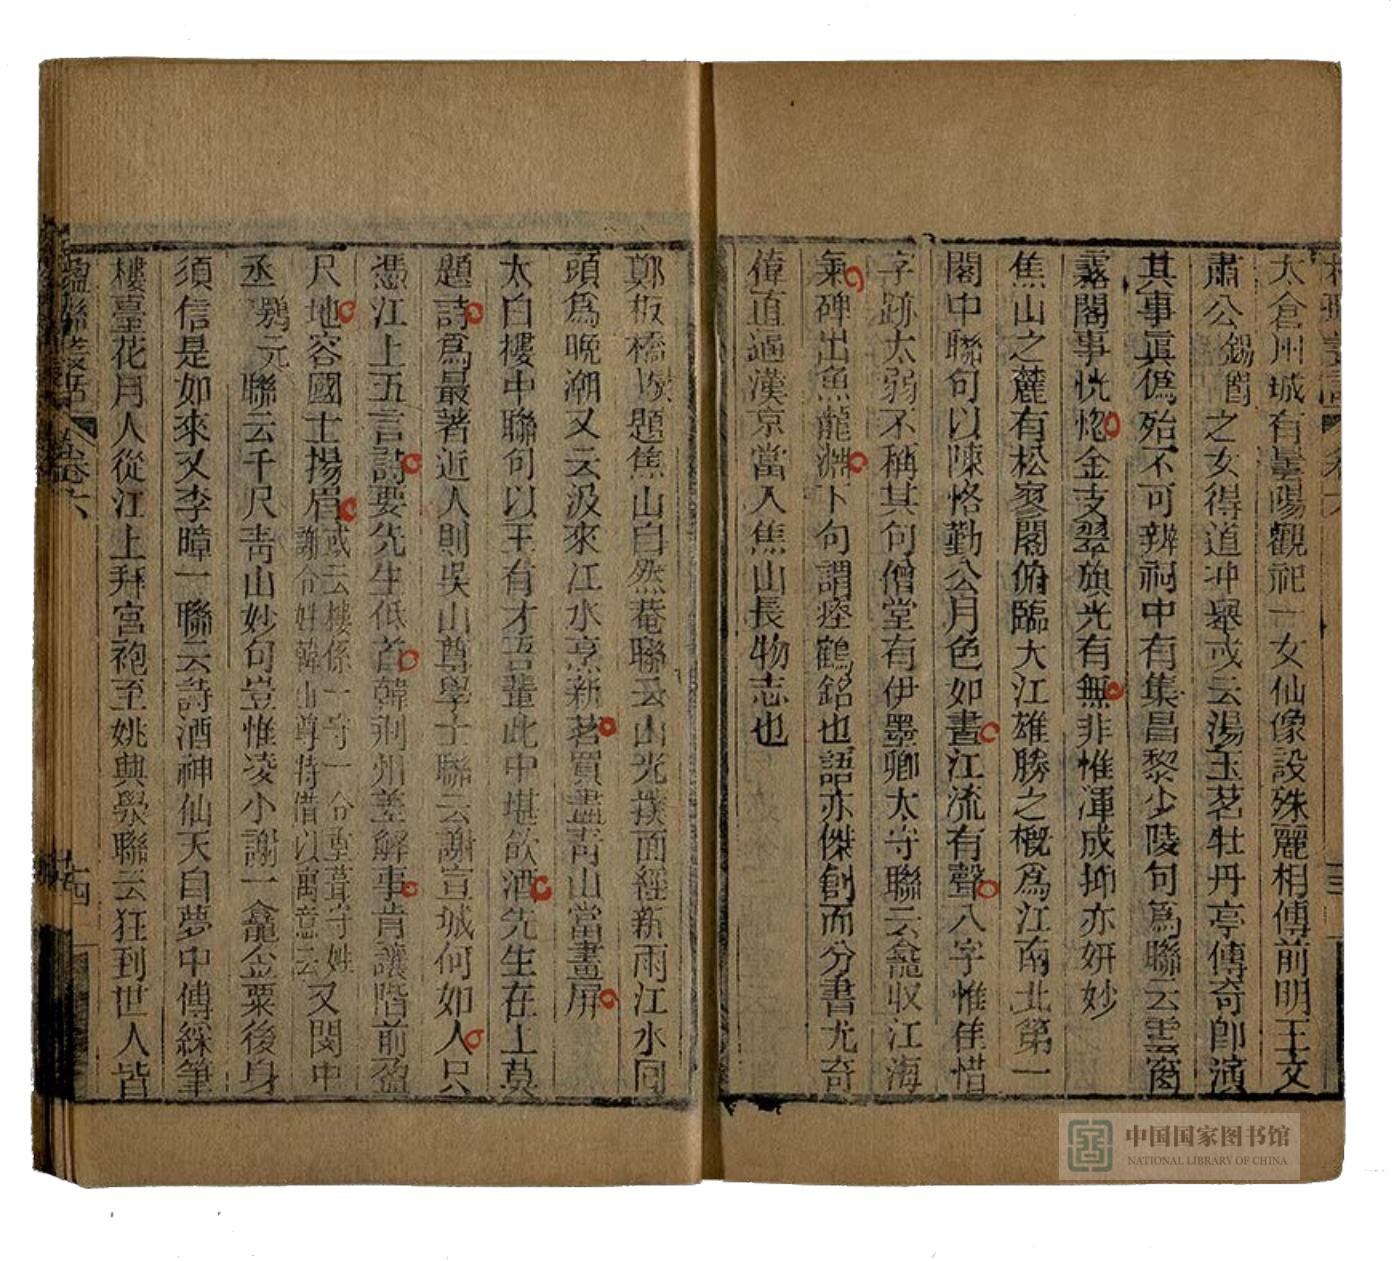 太倉州城有曇陽觀祀一女仙像設殊麗相傳前明王文
肅公錫爵之女得道冲舉或云湯玉茗牡丹亭傳奇卽演
其事眞僞殆不可辨祠中有集昌黎少陵句爲聯云雲窗
霧閣事恍惚金支翠旗光有無非惟渾成抑亦妍妙
焦山之麓有松寥閣俯臨大江雄勝之槪爲江南北第一
閣中聯句以陳恪勤公月色如晝江流有聲八字惟佳惜
字跡太弱不稱其句僧堂有伊墨卿太守聯云龕収江海
氣碑出魚龍淵下句謂瘞鶴銘也語亦傑創而分書尤奇
偉直逼漢京當入焦山長物志也
鄭板橋燮題焦山自然菴聯云山光撲面經新雨江水回
頭爲晚潮又云汲來江水烹新茗買盡靑山當畫屏
太白樓中聯句以王有才吾輩此中堪飲酒先生在上莫
題詩爲最著近人則吳山尊學士聯云謝宣城何如人只
憑江上五言詩要先生低首韓荆州差解事肯讓階前盈
尺地容國士揚眉或云樓係一守一令重葺守姓
謝令姓韓山尊特借以寓意云又閔中
丞鶚元聯云千尺靑山妙句豈惟凌小謝一龕金粟後身
須信是如來又李暲一聯云詩酒神仙天自夢中傳綵筆
樓臺花月人從江上拜宮袍至姚興㵎聯云狂到世人皆
楹聯叢話 卷六
十四
中国国家图书馆
NATIONAL LIBRARY OF CHINA